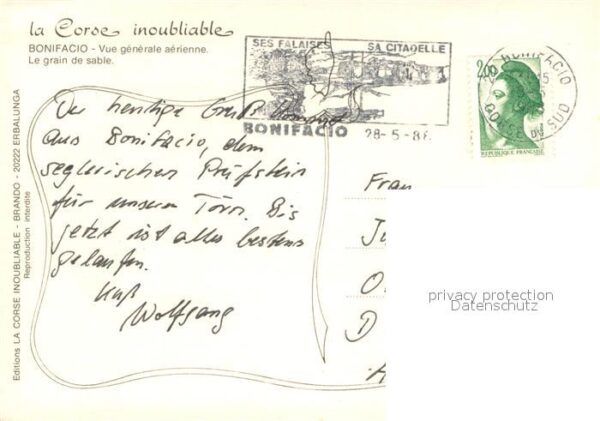 la Corse inoubliable
BONIFACIO - Vue générale aérienne.
Le grain de sable.
SES FALAISES SA CITADELLE
BONIFACIO
28-5-86
BONIFACIO
CORSE DU SUD
2,00
REPUBLIQUE FRANCAISE
Der heutige Gruß kommt
aus Bonifacio, dem
seglerischen Prüfstein
für unseren Törn. Bis
jetzt ist alles bestens
gelaufen.
Kuß
Wolfgang
Frau
Ju
O
D
privacy protection
Datenschutz
Editions LA CORSE INOUBLIABLE - BRANDO - 20222 ERBALUNGA
Reproduction interdite